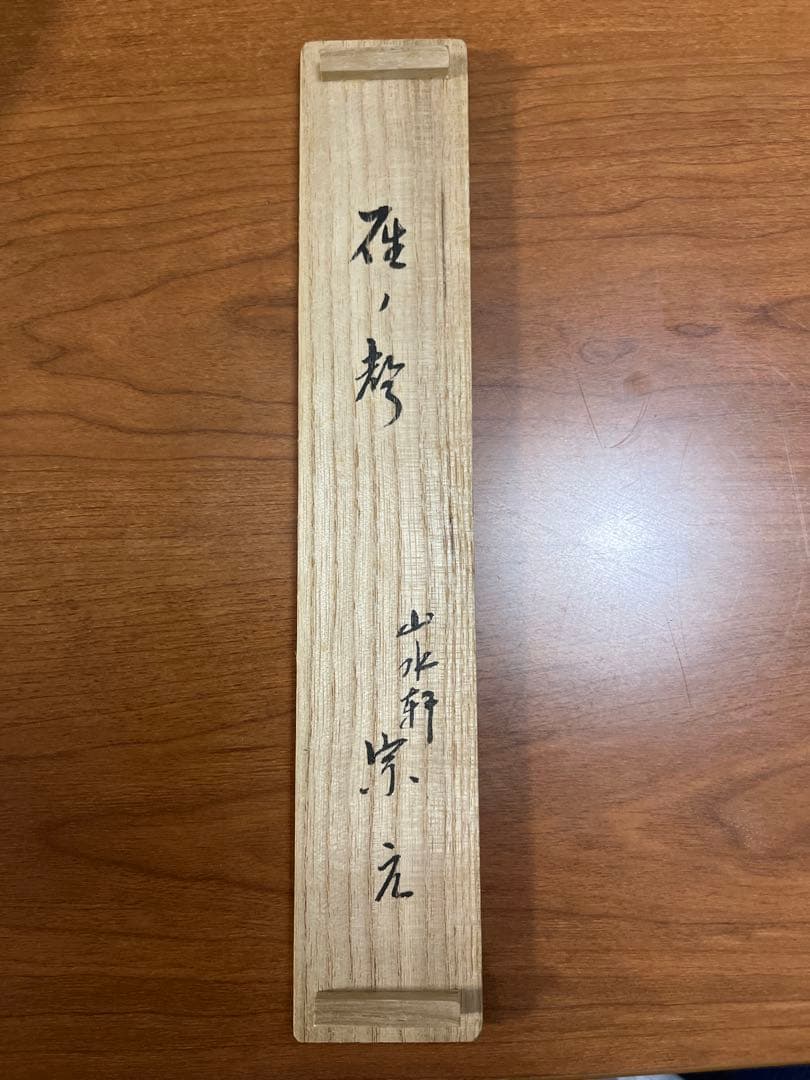 雁ノ聲
山水軒
宗元